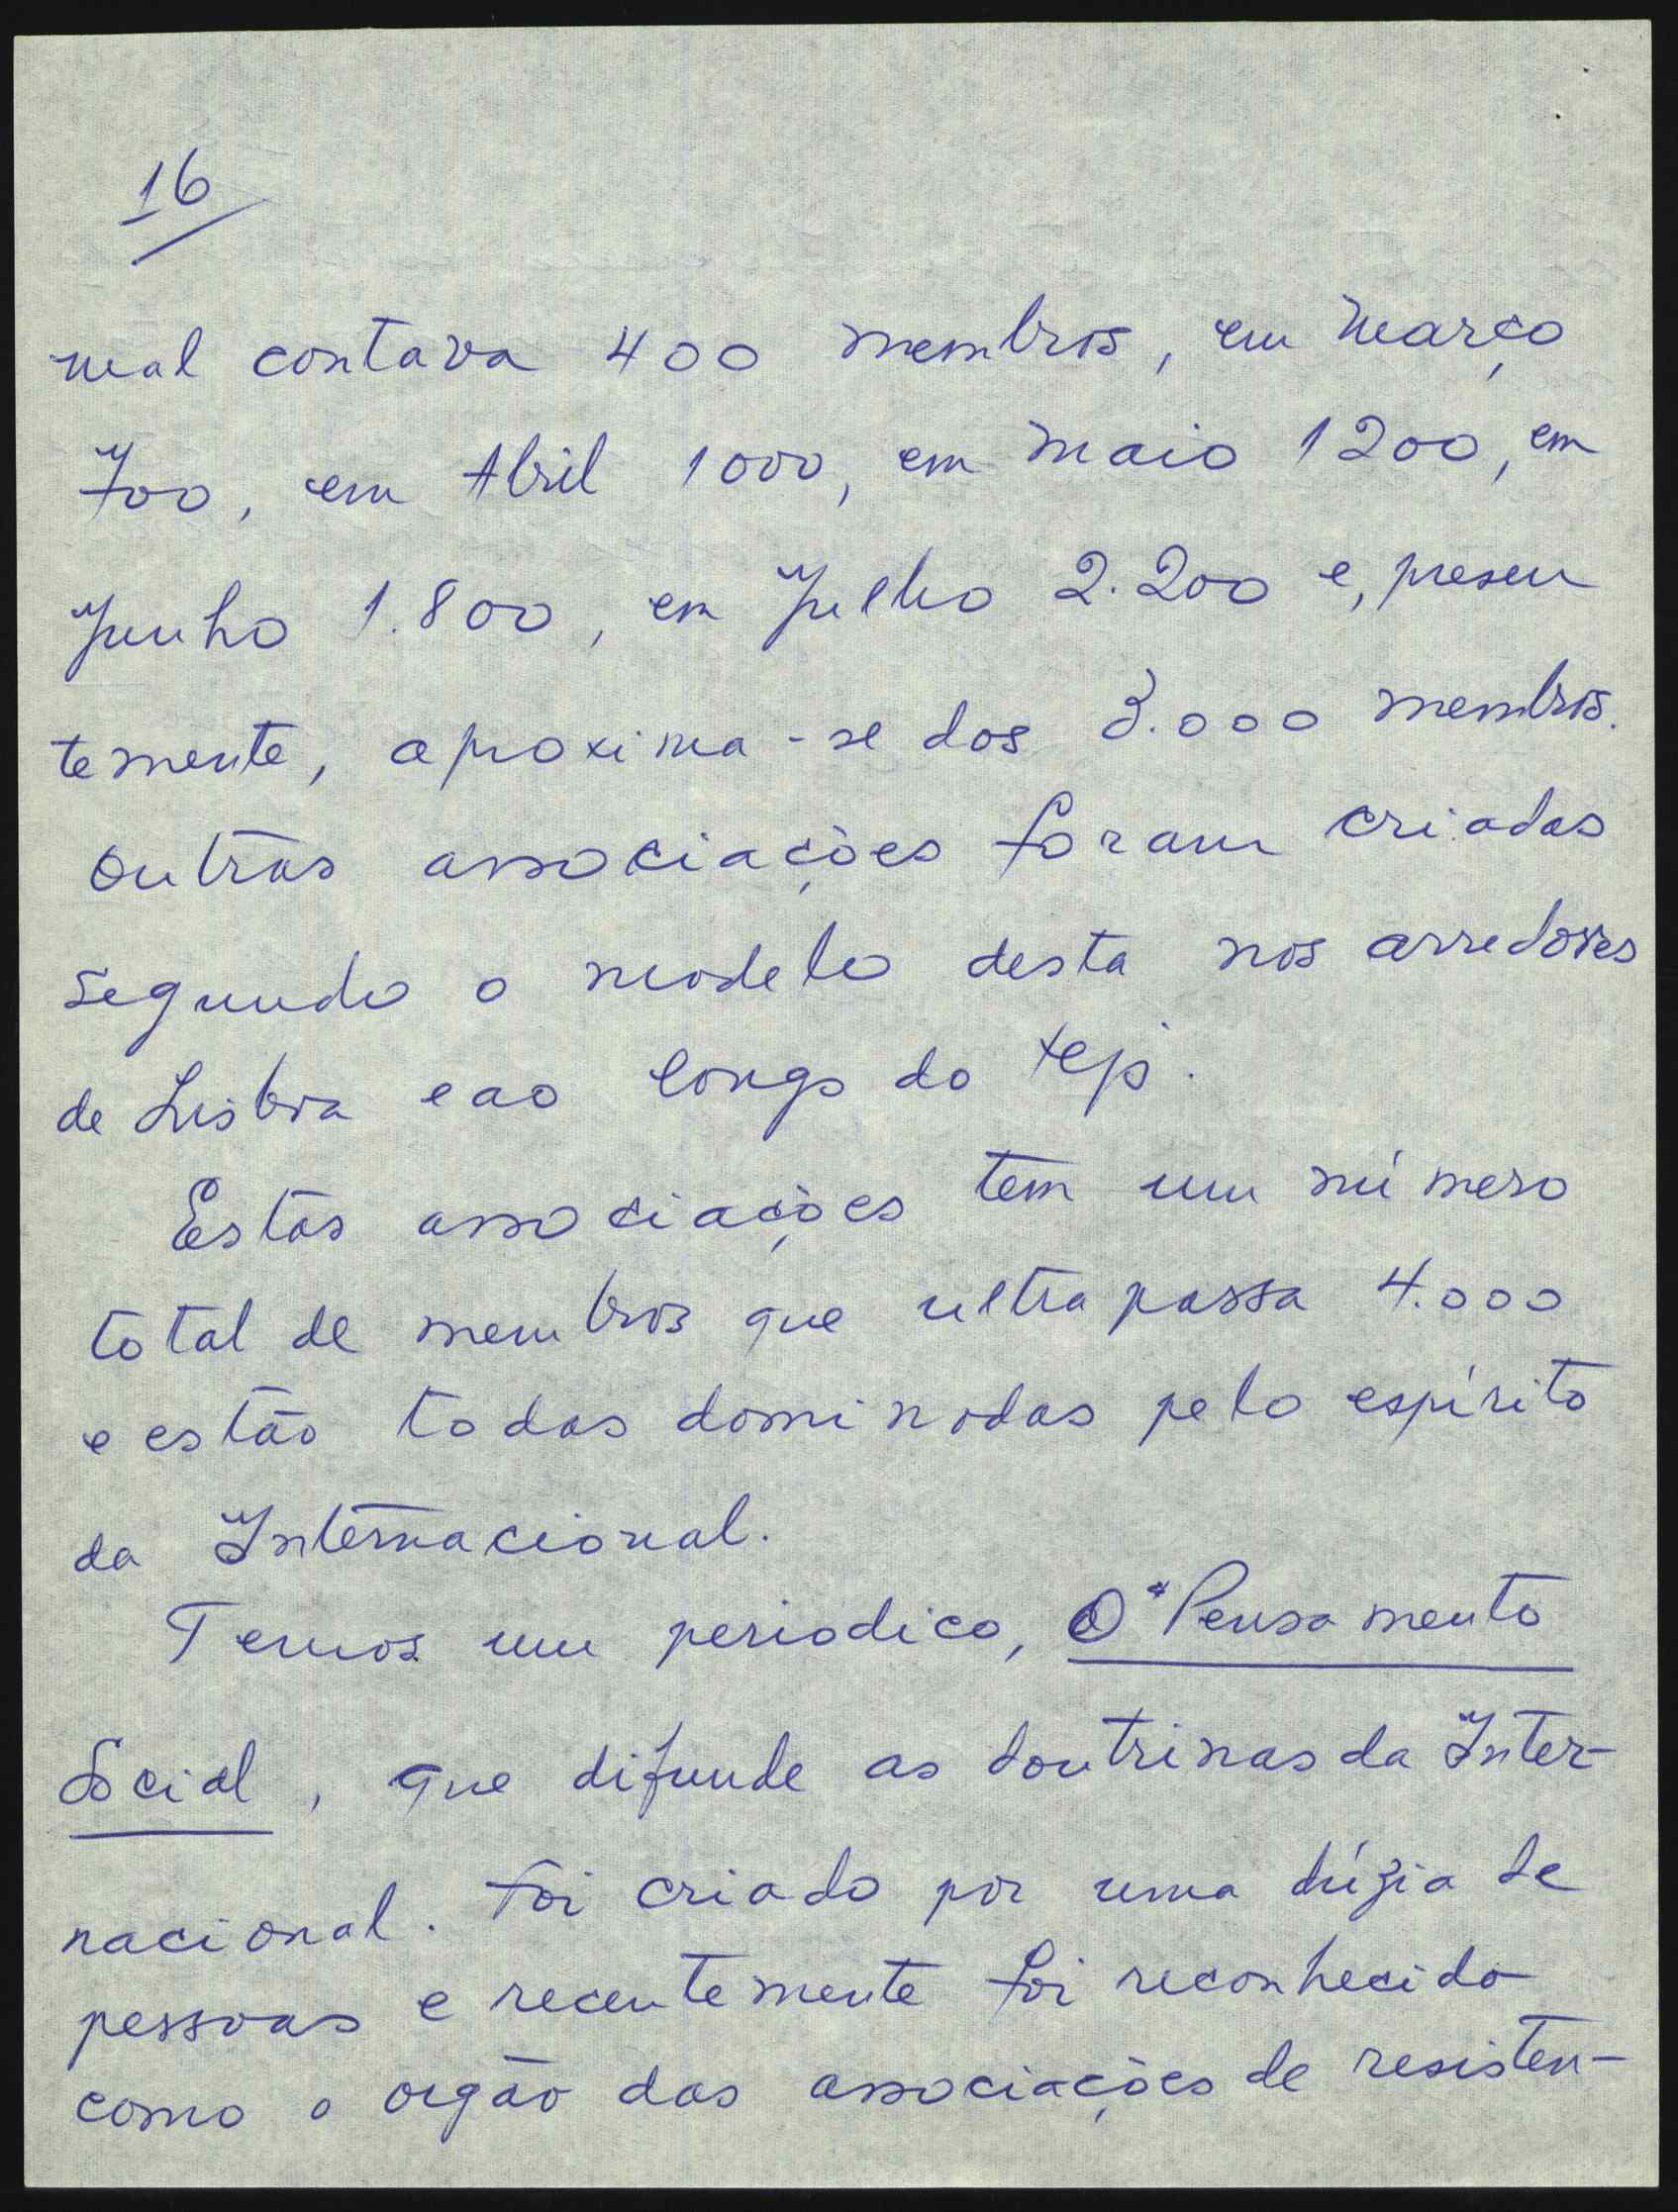 16
nal contava 400 membros, em Março
700, em Abril 1000, em Maio 1200, em
Junho 1.800, em Julho 2.200 e, presen
temente, aproxima-se dos 3.000 membros.
Outras associações foram criadas
segundo o modelo desta nos arredores
de Lisboa e ao longo do Tejo.
Estas associações tem um número
total de membros que ultrapassa 4.000
e estão todas dominadas pelo espírito
da Internacional.
Temos um periodico, O "Pensamento
Social, que difunde as doutrinas da Inter-
nacional. Foi criado por uma dúzia de
pessoas e recentemente foi reconhecido
como o orgão das associações de resisten-